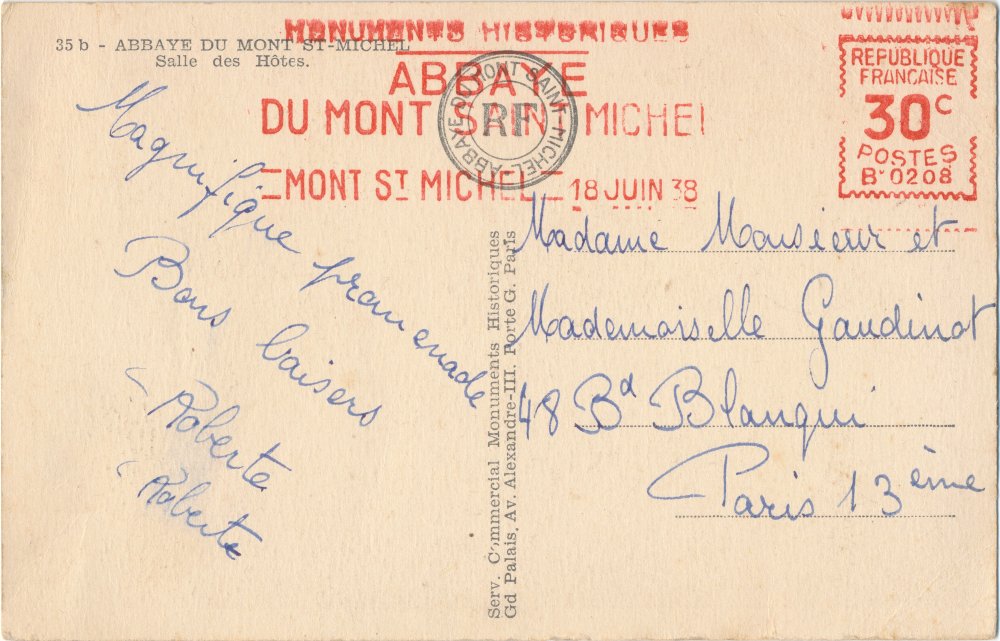 35 b - ABBAYE DU MONT ST-MICHEL
Salle des Hôtes.
MONUMENTS HISTORIQUES
ABBAYE
DU MONT SAINT MICHEL
MONT ST MICHEL 18 JUIN 38
ABBAYE DU MONT SAINT-MICHEL-
RF
REPUBLIQUE
FRANCAISE
30c
POSTES
B.0208
Magnifique promenade
Bons baisers
Roberte
Roberte
Serv. Commercial Monuments Historiques
Gd Palais, Av. Alexandre-III. Porte G. Paris
Madame Monsieur et
Mademoiselle Gaudinot
48 Bd Blanqui
Paris 13ème